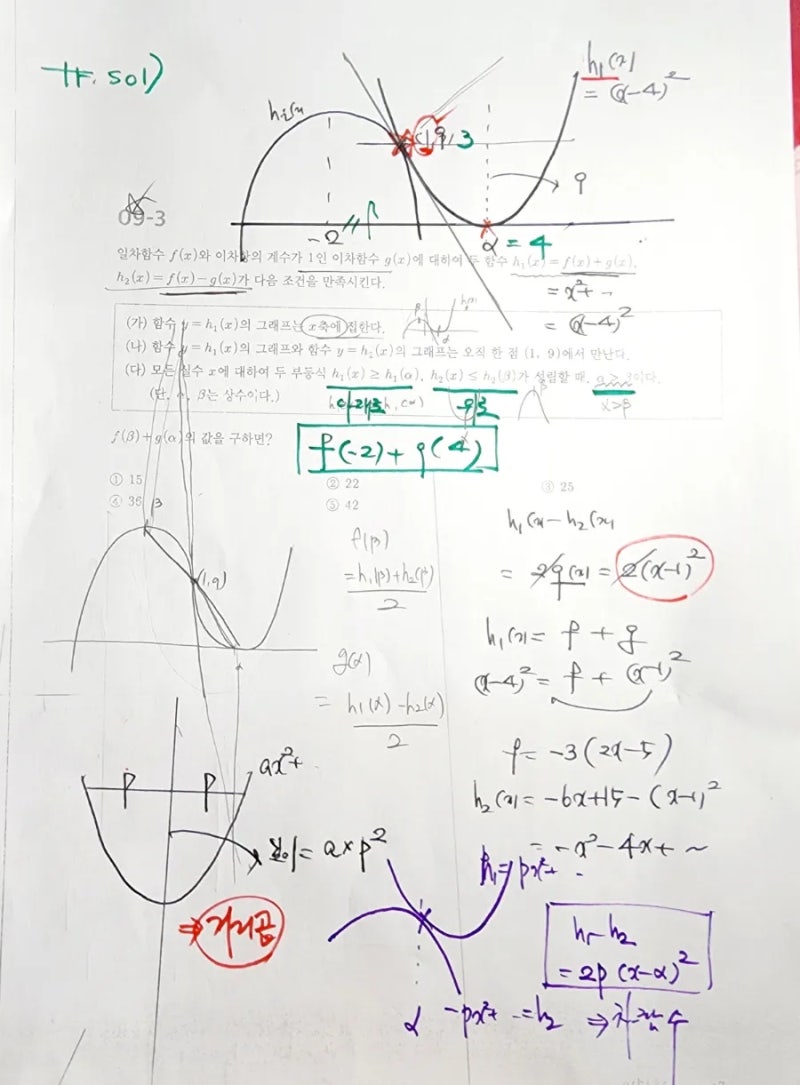 sol)
h₁(x)
= (x-4)²
(1, 9)
3
9
-2
β
α = 4
09-3
일차함수 f(x)와 이차항의 계수가 1인 이차함수 g(x)에 대하여 두 함수 h₁(x)=f(x)+g(x),
h₂(x)=f(x)-g(x)가 다음 조건을 만족시킨다.
= x²+ ~
= (x-4)²
(가) 함수 y=h₁(x)의 그래프는 x축에 접한다.
(나) 함수 y=h₁(x)의 그래프와 함수 y=h₂(x)의 그래프는 오직 한 점 (1, 9)에서 만난다.
(다) 모든 실수 x에 대하여 두 부등식 h₁(x)≥h₁(α), h₂(x)≤h₂(β)가 성립할 때, α>β이다.
(단, α, β는 상수이다.)
α>β
f(β)+g(α)의 값을 구하면?
f(-2)+g(4)
① 15
② 22
③ 25
④ 36
⑤ 42
β
(1,9)
f(β)
= h₁(β)+h₂(β)
2
g(α)
= h₁(α)-h₂(α)
2
h₁(x)-h₂(x)
= 2g(x) = 2(x-1)²
h₁(x) = f + g
(x-4)² = f + (x-1)²
f = -3(2x-5)
h₂(x) = -6x+15-(x-1)²
= -x²-4x+ ~
P
P
ax²+
높이 = a×p²
h₁=px²+ ~
α
-px²+ ~ =h₂
h₁-h₂
= 2p(x-α)²